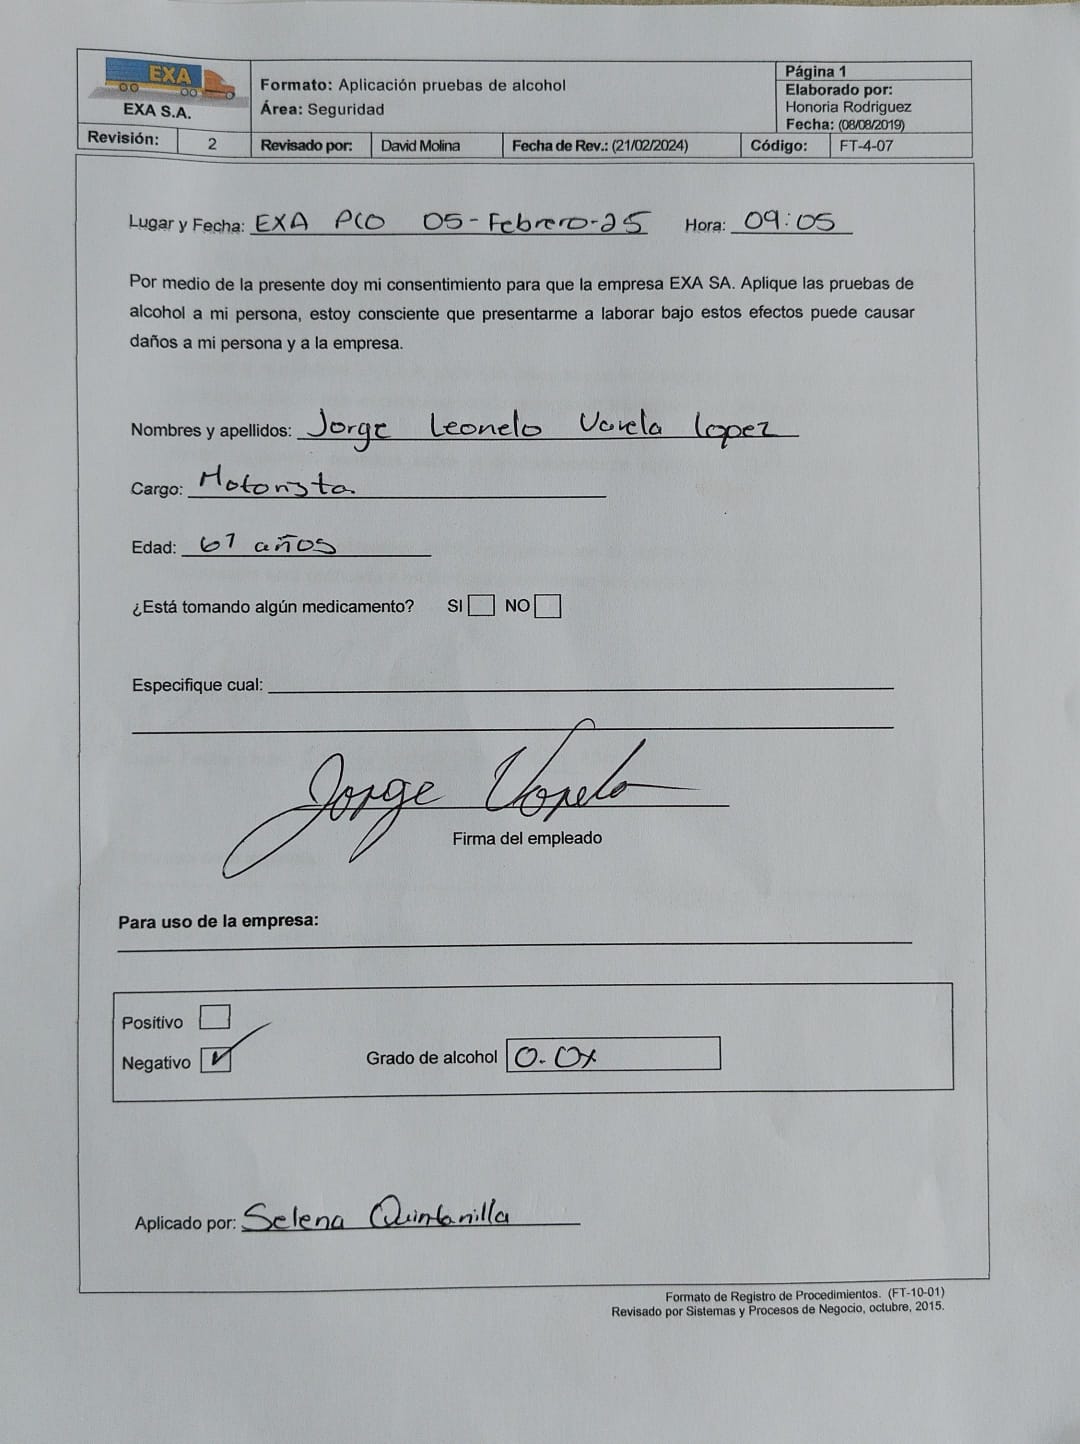 EXA
EXA S.A.
Formato: Aplicación pruebas de alcohol
Área: Seguridad
Página 1
Elaborado por:
Honoria Rodriguez
Fecha: (08/08/2019)
Revisión: 2 Revisado por: David Molina Fecha de Rev.: (21/02/2024) Código: FT-4-07
Lugar y Fecha: EXA PCO 05-Febrero-25 Hora: 09:05
Por medio de la presente doy mi consentimiento para que la empresa EXA SA. Aplique las pruebas de
alcohol a mi persona, estoy consciente que presentarme a laborar bajo estos efectos puede causar
daños a mi persona y a la empresa.
Nombres y apellidos: Jorge Leonelo Varela Lopez
Cargo: Motorista
Edad: 61 años
¿Está tomando algún medicamento? SI NO
Especifique cual:
Jorge Varela
Firma del empleado
Para uso de la empresa:
Positivo
Negativo
Grado de alcohol 0.0x
Aplicado por: Selena Quintanilla
Formato de Registro de Procedimientos. (FT-10-01)
Revisado por Sistemas y Procesos de Negocio, octubre, 2015.